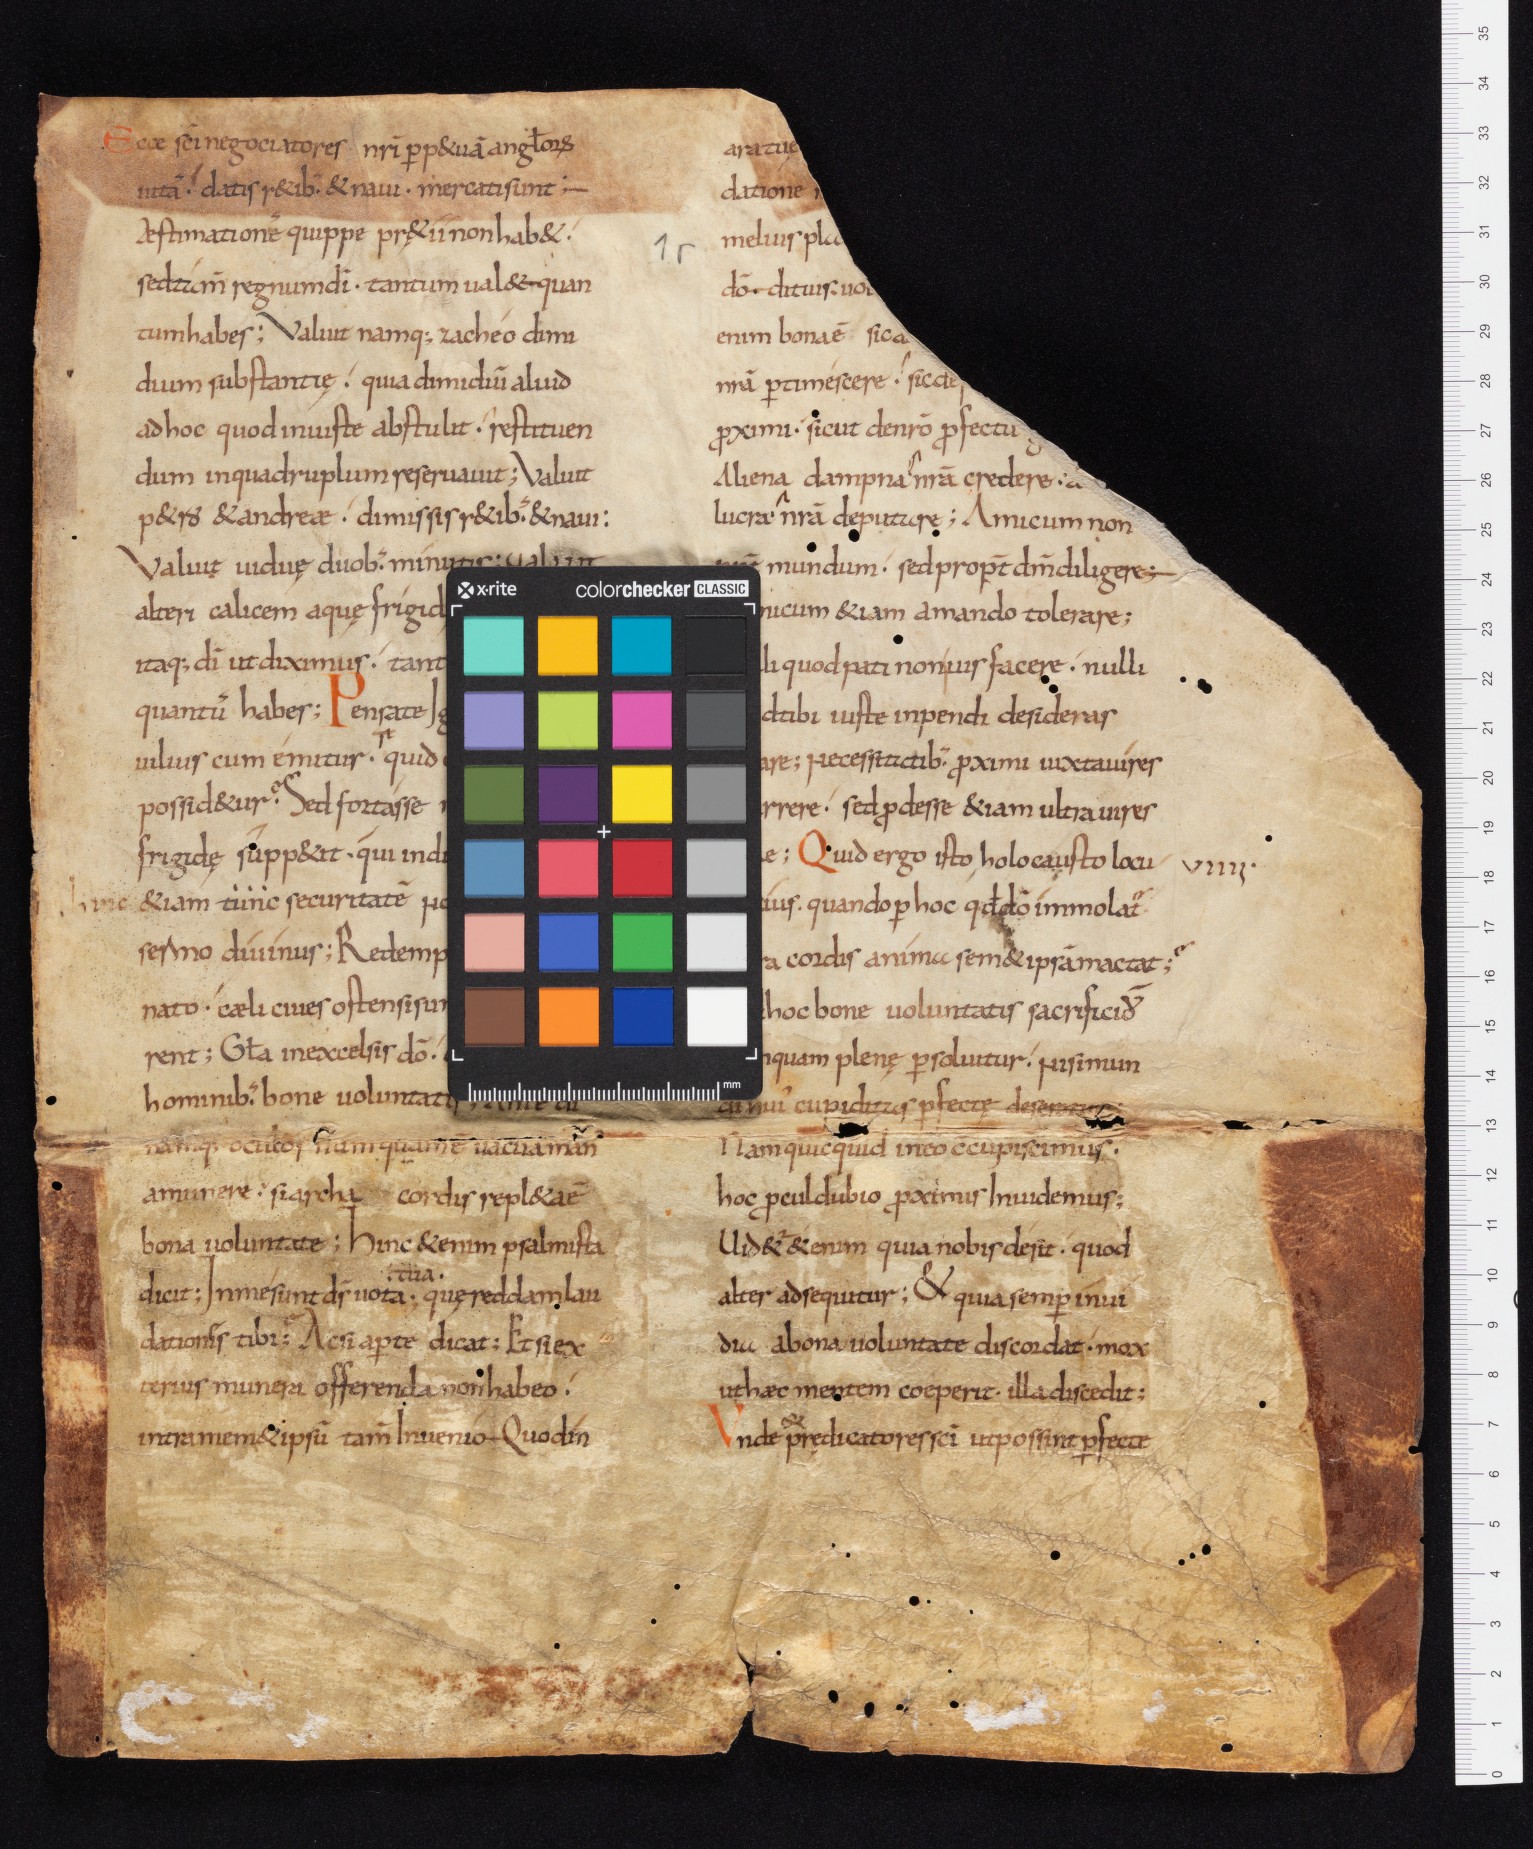 Ecce sci negociatores nri pp&uā angłorȝ
uitā. datis r&ib: & naui. mercati sunt;
Æstimationē quippe pr&ii non hab&.
sed tam regnum di. tantum ual& quan
tum habes; Valuit namq; zacheo dimi
dium substantię. quia dimidiū aliud
ad hoc quod iniuste abstulit. restituen
dum in quadruplum reseruauit; Valuit
p&ro & andreæ. dimissis r&ib: & naui:
Valuit uiduę duob: minutis; Valuit
alteri calicem aquę frigid
itaq; di ut diximus. tant
quantū habes; Pensate Ig
uilius cum emitur. quid
possid&ur. Sed fortasse
frigidę supp&it. qui indi
hinc &iam tunc securitatē
sermo diuinus; Redemp
nato. cæli ciues ostensi sun
rent; Gła in excelsis dō.
hominib: bone uoluntati
namq; oculos numquam ē uacua man
a munere. si archa cordis repl&a ē
bona uoluntate; Hinc &enim psalmista
tua.
dicit; In me sunt ds uota. quę reddam lau
dationis tibi; Ac si apte dicat: Et si ex
terius munera offerenda non habeo.
intra mem&ipsū tam Inuenio Quod in
aratue
datione
melius pla
dō. ditius: uol
enim bona ē sic a
nrā ptimescere. sic de
pximi. sicut de nrō pfectu g
Aliena dampna nrā credere. a
lucra nrā deputare; Amicum non
mundum. sed propt dm diligere;
nicum &iam amando tolerare;
li quod pati non uis facere. nulli
d tibi iuste inpendi desideras
are; Necessitatib: pximi iuxta uires
rrere. sed pdesse &iam ultra uires
e; Quid ergo isto holocausto locu
VIIII.
ius. quando p hoc qd dō immolat
ra cordis anima sem&ipsā mactat;
hoc bone uoluntatis sacrificiū
nquam plenę psoluitur. nisi mun
di hui cupiditas pfectę deseratur;
Nam quicquid in eo ccupiscimus.
hoc pculdubio pximis Inuidemus;
Uid& &enim quia nobis desit. quod
alter adsequitur; & quia semp inui
dia a bona uoluntate discordat. mox
ut hæc mentem coeperit. illa discedit;
Vnde prędicatores sci ut possint pfecte
1r
x·rite colorchecker CLASSIC
mm
35
34
33
32
31
30
29
28
27
26
25
24
23
22
21
20
19
18
17
16
15
14
13
12
11
10
9
8
7
6
5
4
3
2
1
0